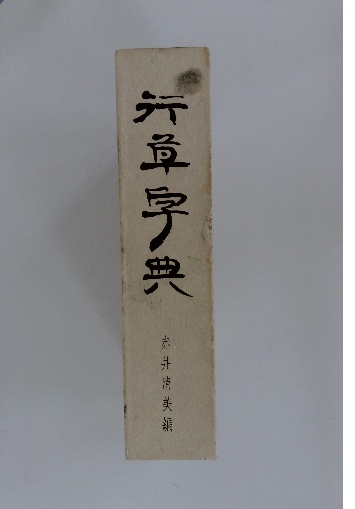 行草字典
赤井清美編